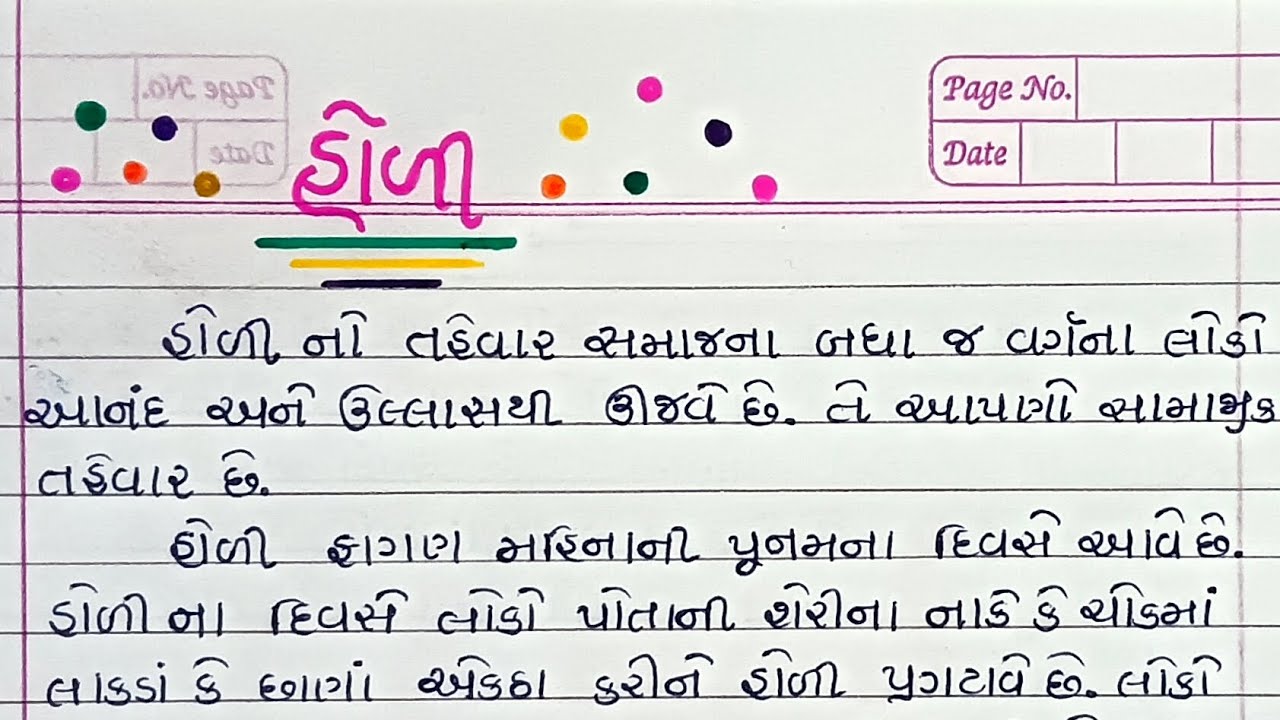 Page No.
Date
હોળી
હોળી નો તહેવાર સમાજના બધા જ વર્ગના લોકો
આનંદ અને ઉલ્લાસથી ઊજવે છે. તે આપણો સામાજીક
તહેવાર છે.
હોળી ફાગણ મહિનાની પૂનમના દિવસે આવે છે.
હોળી ના દિવસે લોકો પોતાની શેરીના નાકે કે ચોકમાં
લાકડાં કે છાણાં એકઠા કરીને હોળી પ્રગટાવે છે. લોકો